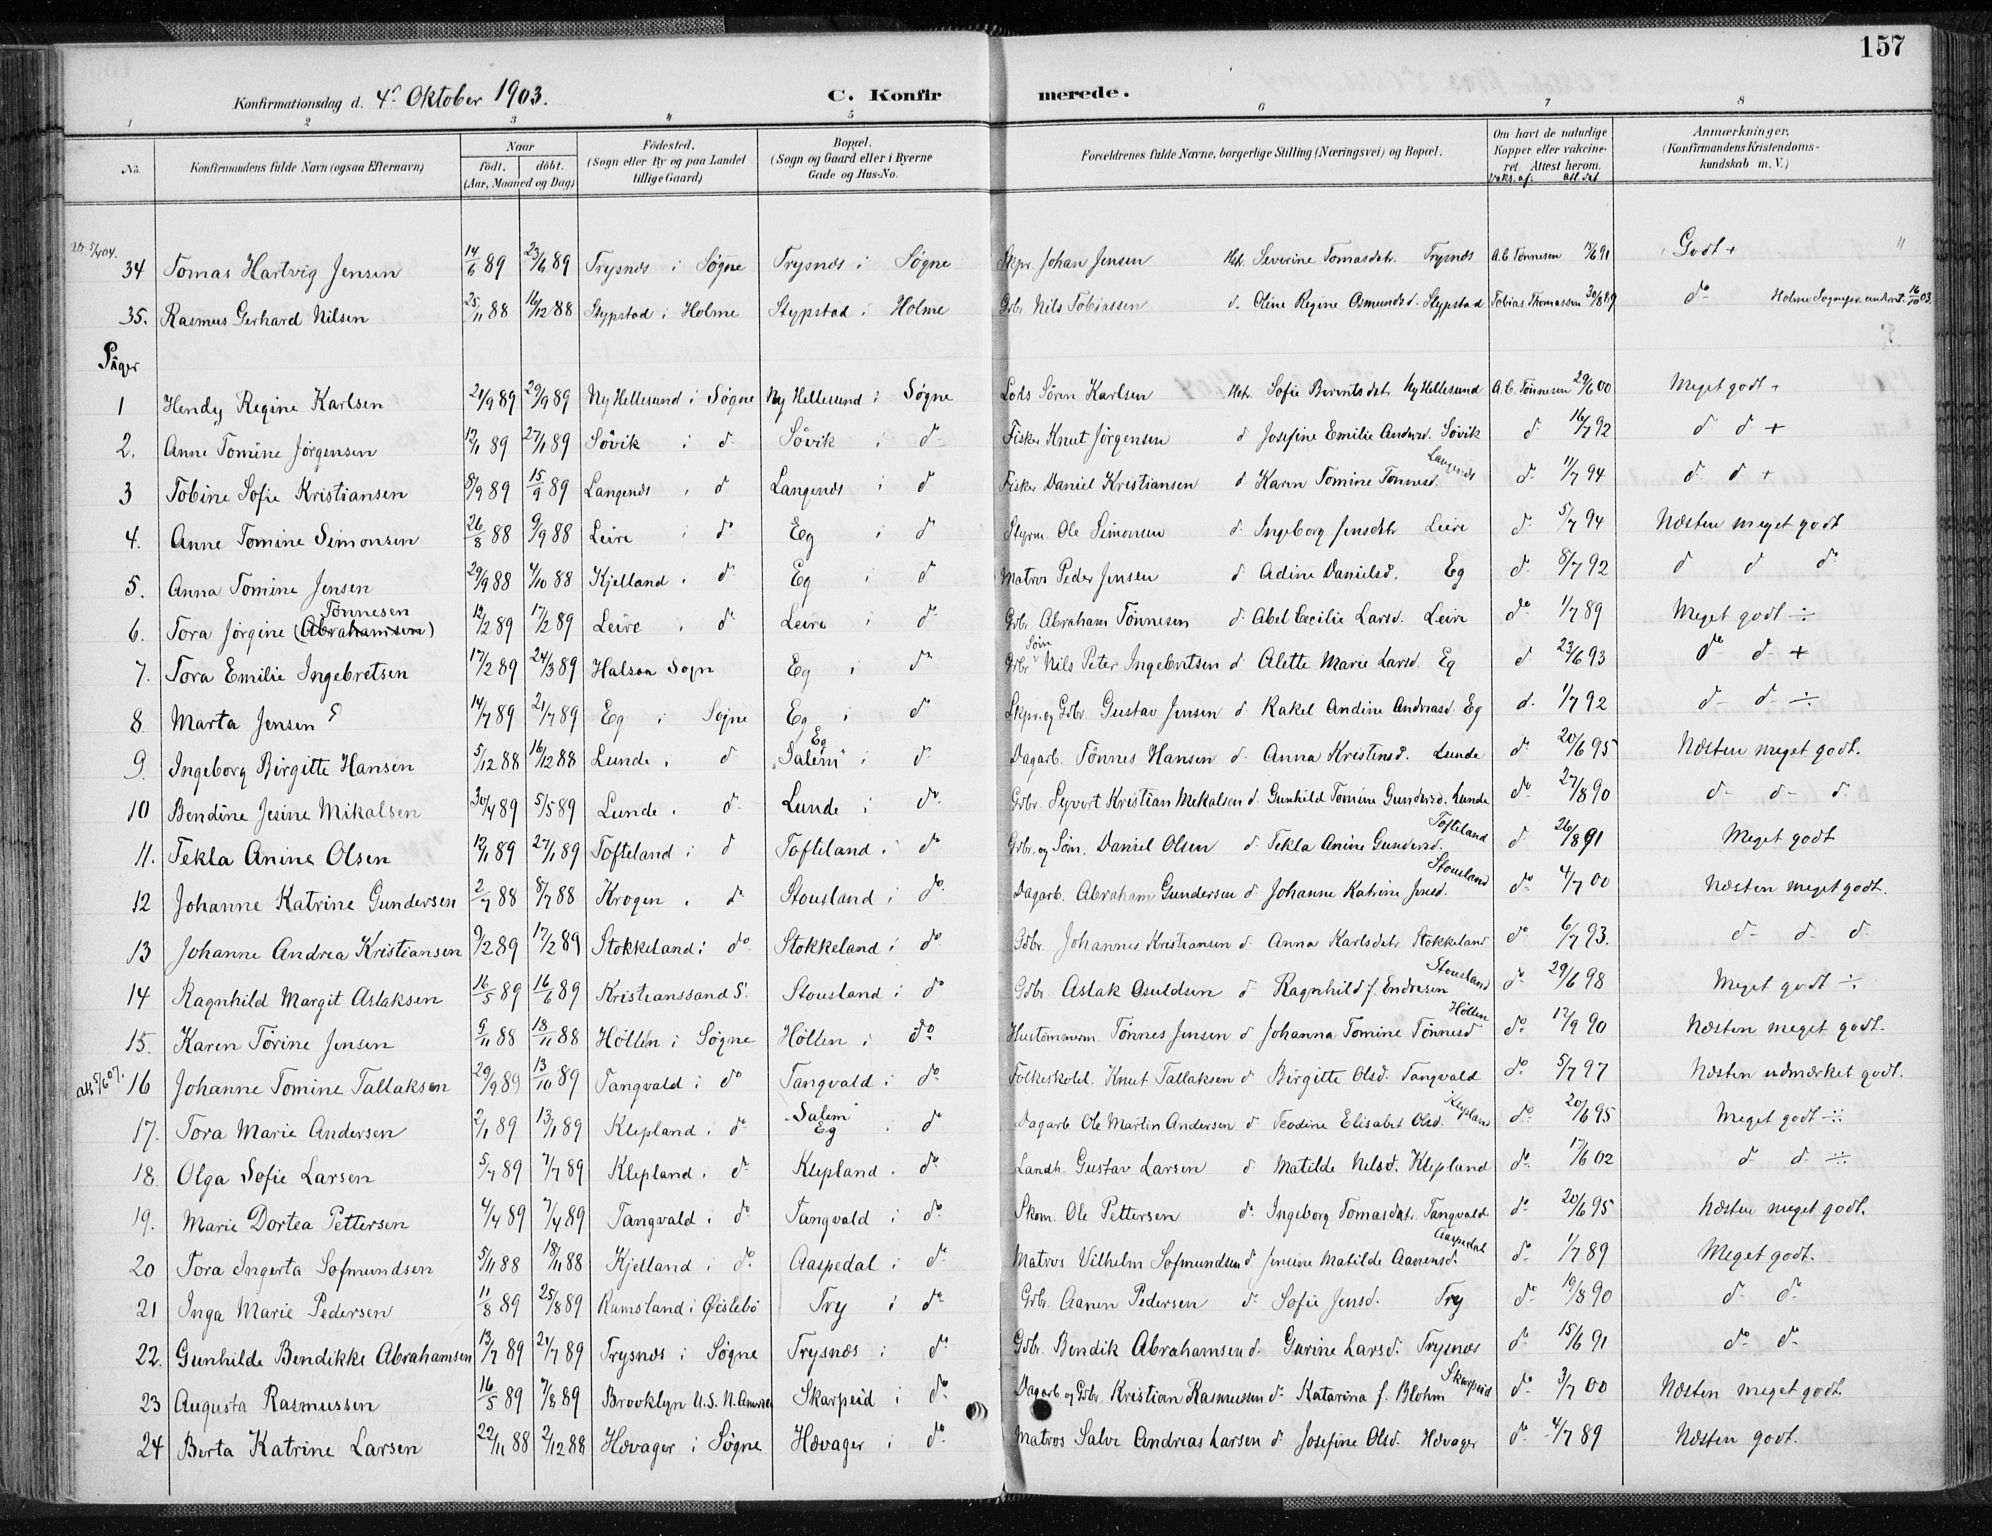 157
Konfirmationsdag d. 4de Oktober 1903. C. Konfirmerede.
1 2 3 4 5 6 7 8
No. Konfirmandens fulde Navn (ogsaa Efternavn) Naar født. døbt. (Aar, Maaned og Dag) Fødested. (Sogn eller By og paa Landet tillige Gaard) Bopæl. (Sogn og Gaard eller i Byerne Gade og Hus-No. Forældrenes fulde Navne, borgerlige Stilling (Næringsvei) og Bopæl. Om havt de naturlige Kopper eller vakcineret. Attest herom. Vaks. af: att. dat Anmærkninger. (Konfirmandens Kristendomskundskab m. V.)
34 Tomas Hartvig Jensen 14/6 89 23/6 89 Trysnæs i Søgne Trysnæs i Søgne Skpr. Johan Jensen Hstr. Severine Tomasdatr. Trysnæs A.C. Tønnesen 15/6 91 Godt + "
35. Rasmus Gerhard Nilsen 25/11 88 16/12 88 Stypstad i Holme Stypstad i Holme Gdbr Nils Tobiassen d. Oline Regine Osmundsd. Stypstad Tobias Thomassen 30/8 89 do Holme Sognepr. underret. 16/10 03.
Piger
1 Hendy Regine Karlsen 21/9 89 29/9 89 Ny Hellesund i Søgne Ny Hellesund i Søgne Lods Sören Karlsen Hstr. Sofie Berentsdatr Ny Hellesund A.C. Tønnesen 29/6 00 Meget godt +
2. Anne Tomine Jörgensen 12/1 89 27/1 89 Søvik i d Søvik i d Fisker Knut Jörgensen d Josefine Emilie Andersd. Søvik d 16/7 92 d d +
3 Tobine Sofie Kristiansen 8/9 89 15/9 89 Langenes i d Langenes i d Fisker Daniel Kristiansen d Karen Tomine Tønnesd. Langenes d. 11/7 94 d d +
4. Anne Tomine Simonsen 26/8 88 9/9 88 Leire i do Eg i d Styrm. Ole Simonsen d. Ingeborg Jensdatr Leire d. 5/7 94 Næsten meget godt
5. Anna Tomine Jensen 29/9 88 4/10 88 Kjelland i d Eg i d Matros Peder Jensen d Adine Danielsd. Eg d. 8/7 92 d d do
6. Tora Jørgine (Abrahamsen) Tønnesen 12/2 89 17/2 89 Leire i d. Leire i d. Gdbr. Abraham Tønnesen d. Abel Cecilie Larsd. Leire do 1/7 89 Meget godt ÷
7. Tora Emilie Ingebretsen 17/2 89 24/3 89 Halsaa Sogn Eg i d. Gdbr Søm Nils Peter Ingebretsen d. Alette Marie Larsd. Eg d 23/6 93 do d. +
8 Marta Jensen 14/7 89 21/7 89 Eg i Søgne Eg i d Skpr. og Gdbr Gustav Jensen d Rakel Andine Andreasd. Eg d. 1/7 92 d d ÷
9. Ingeborg Birgitte Hansen 5/12 88 16/12 88 Lunde i d Eg "Salem" i d. Dagarb. Tønnes Hansen d. Anna Kristensd. Lunde d. 20/6 95 Næsten meget godt.
10 Bendine Jesine Mikalsen 30/4 89 5/5 89 Lunde i d. Lunde i do. Gdbr. Syvert Kristian Mikalsen d. Gunhild Tomine Gundersd. Lunde do. 27/8 90 d d d.
11. Tekla Anine Olsen 12/1 89 27/1 89 Tofteland i d Tofteland i do Gdbr. og Søm. Daniel Olsen d Tekla Anine Gundersd. Tofteland d 26/8 91 Meget godt
12 Johanne Katrine Gundersen 2/7 88 8/7 88 Krogen i d. Stousland i do. Dagarb. Abraham Gundersen d Johanne Katrine Jensd. Stousland do. 4/7 00 Næsten meget godt.
13 Johanne Andrea Kristiansen 9/2 89 17/2 89 Stokkeland i do Stokkeland i do. Gdbr. Johannes Kristiansen d. Anna Karlsdatr Stokkeland do. 6/7 93. d. d. d.
14 Ragnhild Margit Aslaksen 16/5 89 16/6 89 Kristianssand S. Stousland i do Gdbr. Aslak Osuldsen d Ragnhild f. Endresen Stousland do. 29/6 98 Meget godt ÷.
15. Karen Tørine Jensen 9/11 88 18/11 88 Høllen i Søgne Høllen i do. Hustømmerm. Tønnes Jensen d Johanna Tomine Tønnesd Høllen do. 12/9 90 Næsten meget godt.
16 Johanne Tomine Tallaksen 29/9 89 13/10 89 Tangvald i do Tangvald i do. Folkeskolel. Knut Tallaksen d Birgitte Olsd. Tangvald do. 5/7 97 Næsten udmærket godt.
17. Tora Marie Andersen 2/1 89 13/1 89 Klepland i d. "Salem" Eg i d Dagarb Ole Martin Andersen d Teodine Elisabet Olsd. Klepland do. 20/6 95 Meget godt ÷
18. Olga Sofie Larsen 5/7 89 7/7 89 Klepland i d. Klepland i do. Landh. Gustav Larsen d. Matilde Nilsd. Klepland do. 17/6 02 d d ÷
19. Marie Dortea Pettersen 4/4 89 7/4 89 Tangvald i d. Tangvald i do. Skom. Ole Pettersen d. Ingeborg Tomasdatr. Tangvald do. 20/6 95 Næsten meget godt.
20 Tora Ingerta Sofmundsen 5/11 88 18/11 88 Kjelland i do. Aaspedal i d. Matros Vilhelm Sofmundsen d Jensine Matilde Aanensd. Aaspedal do. 1/7 89 Meget godt.
21 Inga Marie Pedersen 11/8 89 25/8 89 Ramsland i Øislebö Try i do. Gdbr. Aanen Pedersen do Sofie Jensd. Try do. 19/8 90 d. do.
22. Gunhilde Bendikke Abrahamsen 13/7 89 21/7 89 Trysnæs i Søgne Trysnæs i do. Gdbr. Bendik Abrahamsen d. Gurine Larsd. Trysnæs do. 15/6 91 do do.
23 Augusta Rasmussen 16/5 89 7/8 89 Brooklyn U.S. N. Amerika Skarpeid i do. Dagarb og Gdbr Kristian Rasmussen d. Katarina f. Blohm Skarpeid do. 3/7 00 Næsten meget godt.
24 Berta Katrine Larsen 22/11 88 2/12 88 Hævager i Søgne Hævager i do. Matros Salve Andreas Larsen d Josefine Olsd. Hævager do. 4/7 89 Næsten godt.